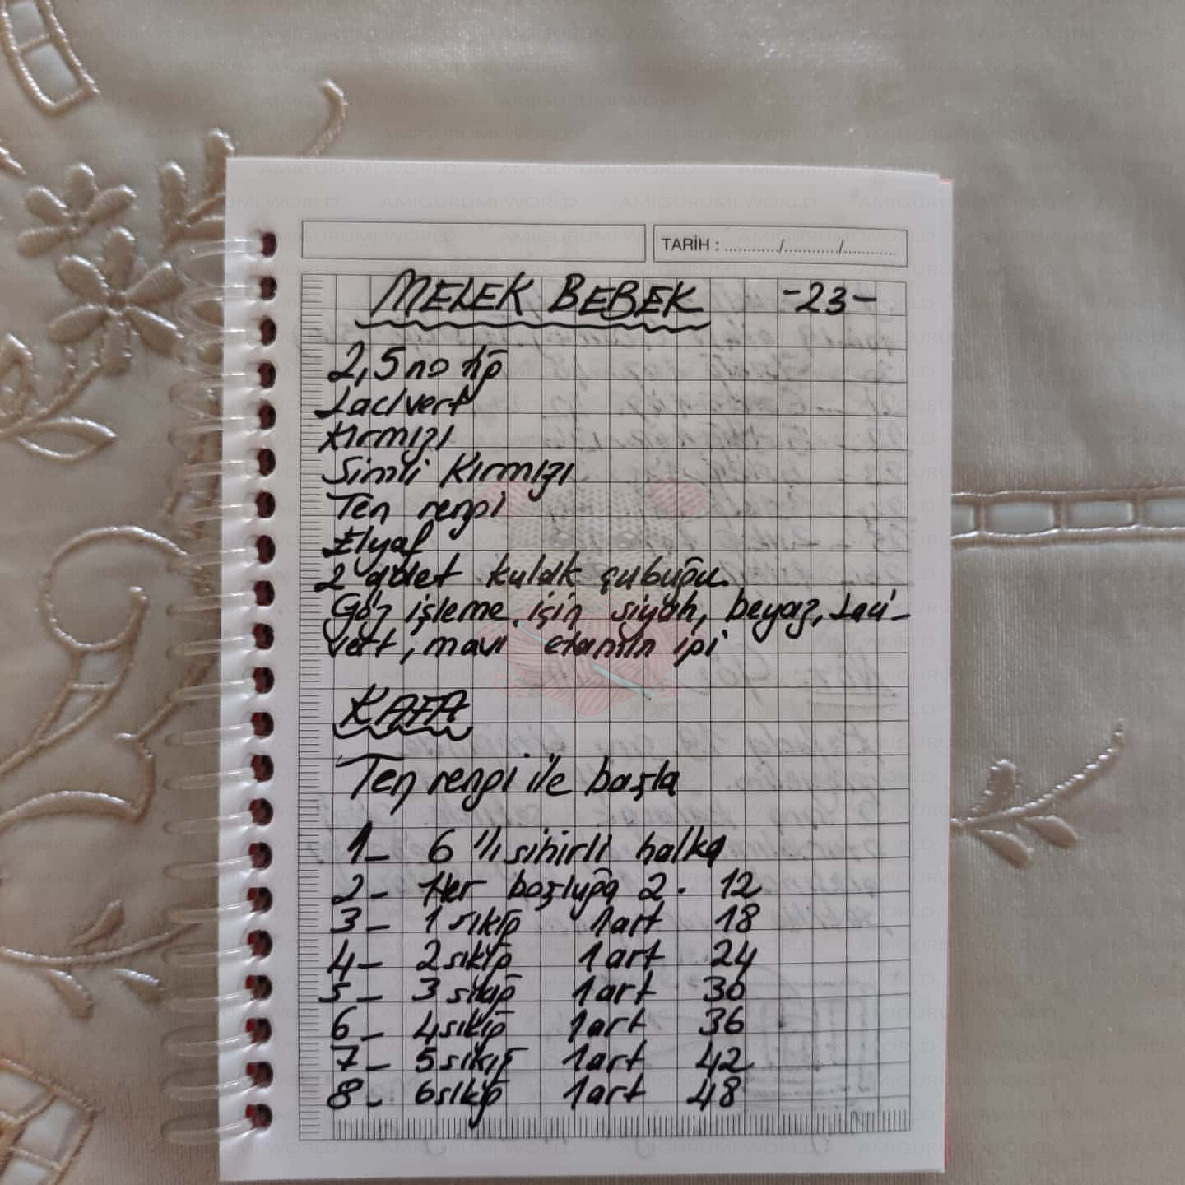 TARİH : ........../........../..........
MELEK BEBEK -23-
2,5 no tığ
Lacivert
Kırmızı
Simli Kırmızı
Ten rengi
Elyaf
2 adet kulak çubuğu.
Göz işleme için siyah, beyaz, Laci-
vert, mavi etamin ipi
KAFA
Ten rengi ile başla
1- 6 'lı sihirli halka
2- Her boşluğa 2. 12
3- 1 sıkiğ 1 art 18
4- 2 sıkiğ 1 art 24
5- 3 sıkiğ 1 art 30
6- 4 sıkiğ 1 art 36
7- 5 sıkiğ 1 art 42
8- 6 sıkiğ 1 art 48
AMIGURUMI WORLD